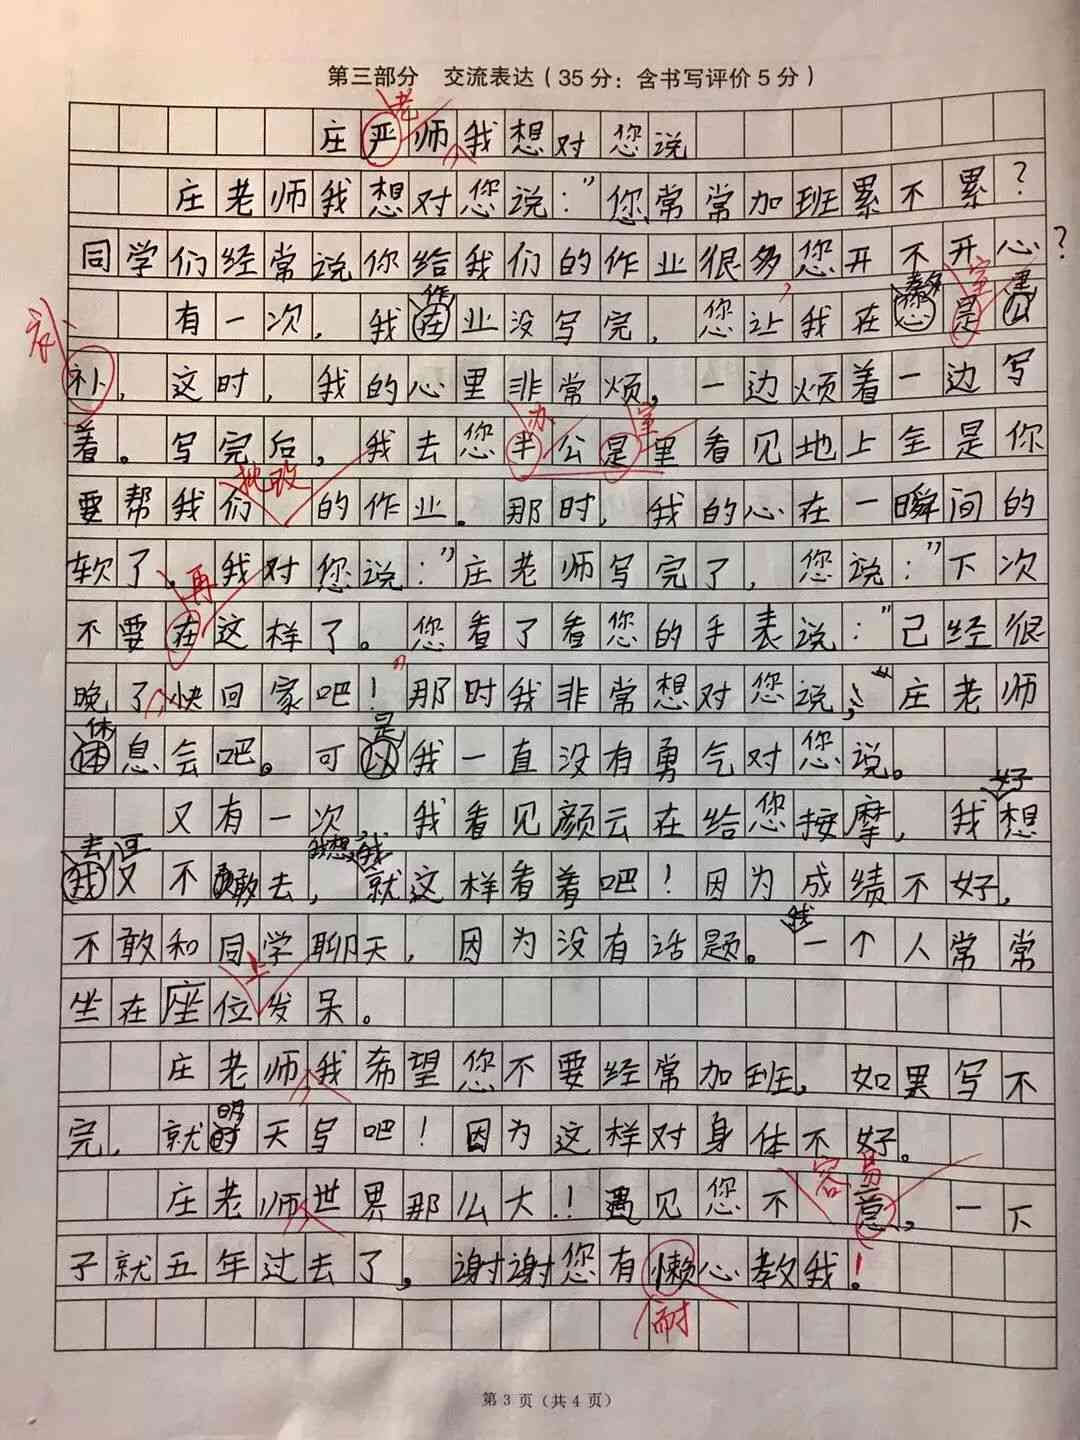 第三部分 交流表达（35分：含书写评价5分）
老
庄严师我想对您说
庄老师我想对您说：”您常常加班累不累？
同学们经常说你给我们的作业很多您开不开心？
作 教 室 里
有一次，我在业没写完，您让我在您是公
补，这时，我的心里非常烦，一边烦着一边写
办 室
着。写完后，我去您半公是里看见地上全是你
批改
要帮我们的作业。那时，我的心在一瞬间的
软了，我对您说：”庄老师写完了，您说：”下次
再
不要在这样了。您看了看您的手表说：”已经很
晚了快回家吧！”那时我非常想对您说，“庄老师
休 是
体息会吧。可以我一直没有勇气对您说。
好
又有一次，我看见颜云在给您按摩，我想
去 可 我想 我
我又不敢去，就这样看着吧！因为成绩不好，
我
不敢和同学聊天，因为没有话题。一个人常常
上
坐在座位发呆。
庄老师我希望您不要经常加班，如果写不
明
完，就时天写吧！因为这样对身体不好。
容易
庄老师世界那么大！遇见您不意，一下
子就五年过去了，谢谢您有懒心教我！
耐
第3页（共4页）